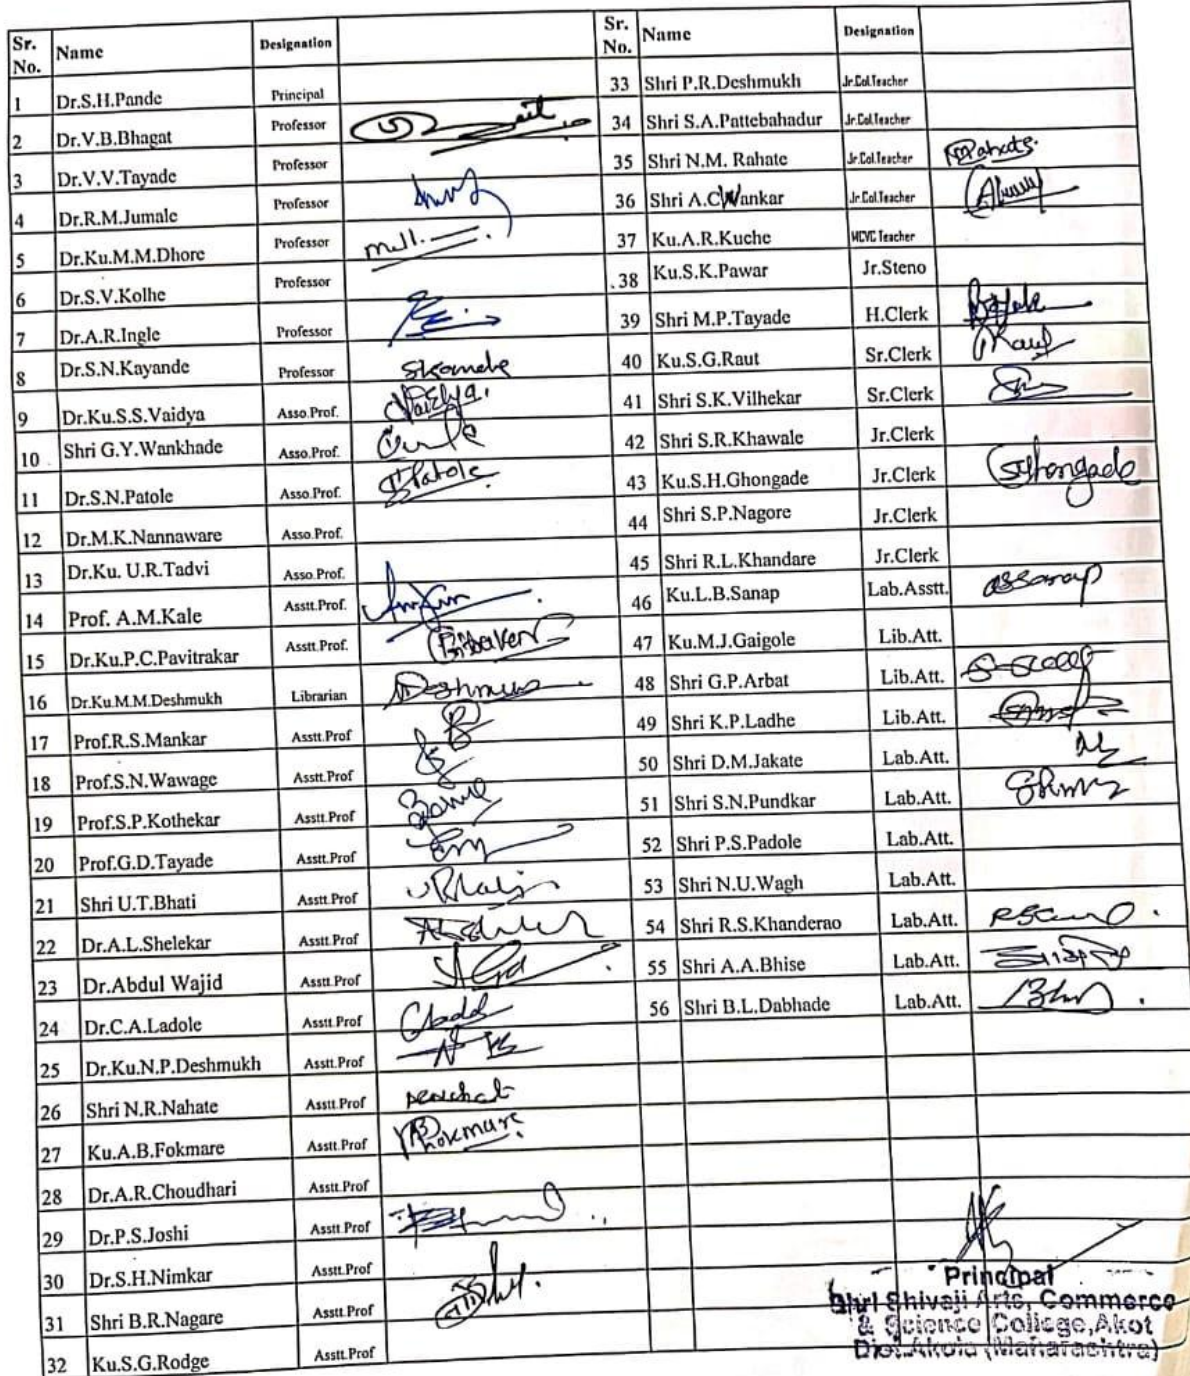 Sr. No. Name Designation
1 Dr.S.H.Pande Principal
2 Dr.V.B.Bhagat Professor
3 Dr.V.V.Tayade Professor
4 Dr.R.M.Jumale Professor
5 Dr.Ku.M.M.Dhore Professor
6 Dr.S.V.Kolhe Professor
7 Dr.A.R.Ingle Professor
8 Dr.S.N.Kayande Professor
9 Dr.Ku.S.S.Vaidya Asso.Prof. Vaidya.
10 Shri G.Y.Wankhade Asso.Prof.
11 Dr.S.N.Patole Asso.Prof. SPatole
12 Dr.M.K.Nannaware Asso.Prof.
13 Dr.Ku. U.R.Tadvi Asso.Prof.
14 Prof. A.M.Kale Asstt.Prof.
15 Dr.Ku.P.C.Pavitrakar Asstt.Prof.
16 Dr.Ku.M.M.Deshmukh Librarian
17 Prof.R.S.Mankar Asstt.Prof
18 Prof.S.N.Wawage Asstt.Prof
19 Prof.S.P.Kothekar Asstt.Prof
20 Prof.G.D.Tayade Asstt.Prof
21 Shri U.T.Bhati Asstt.Prof
22 Dr.A.L.Shelekar Asstt.Prof
23 Dr.Abdul Wajid Asstt.Prof
24 Dr.C.A.Ladole Asstt.Prof
25 Dr.Ku.N.P.Deshmukh Asstt.Prof
26 Shri N.R.Nahate Asstt.Prof
27 Ku.A.B.Fokmare Asstt.Prof
28 Dr.A.R.Choudhari Asstt.Prof
29 Dr.P.S.Joshi Asstt.Prof
30 Dr.S.H.Nimkar Asstt.Prof
31 Shri B.R.Nagare Asstt.Prof
32 Ku.S.G.Rodge Asstt.Prof
Sr. No. Name Designation
33 Shri P.R.Deshmukh Jr.Col.Teacher
34 Shri S.A.Pattebahadur Jr.Col.Teacher
35 Shri N.M. Rahate Jr.Col.Teacher
36 Shri A.C.Wankar Jr.Col.Teacher
37 Ku.A.R.Kuche MCVC Teacher
38 Ku.S.K.Pawar Jr.Steno
39 Shri M.P.Tayade H.Clerk
40 Ku.S.G.Raut Sr.Clerk
41 Shri S.K.Vilhekar Sr.Clerk
42 Shri S.R.Khawale Jr.Clerk
43 Ku.S.H.Ghongade Jr.Clerk SGhongade
44 Shri S.P.Nagore Jr.Clerk
45 Shri R.L.Khandare Jr.Clerk
46 Ku.L.B.Sanap Lab.Asstt.
47 Ku.M.J.Gaigole Lib.Att.
48 Shri G.P.Arbat Lib.Att.
49 Shri K.P.Ladhe Lib.Att.
50 Shri D.M.Jakate Lab.Att.
51 Shri S.N.Pundkar Lab.Att.
52 Shri P.S.Padole Lab.Att.
53 Shri N.U.Wagh Lab.Att.
54 Shri R.S.Khanderao Lab.Att.
55 Shri A.A.Bhise Lab.Att.
56 Shri B.L.Dabhade Lab.Att.
Principal
Shri Shivaji Arts, Commerce
& Science College, Akot
Dist.Akola (Maharashtra)